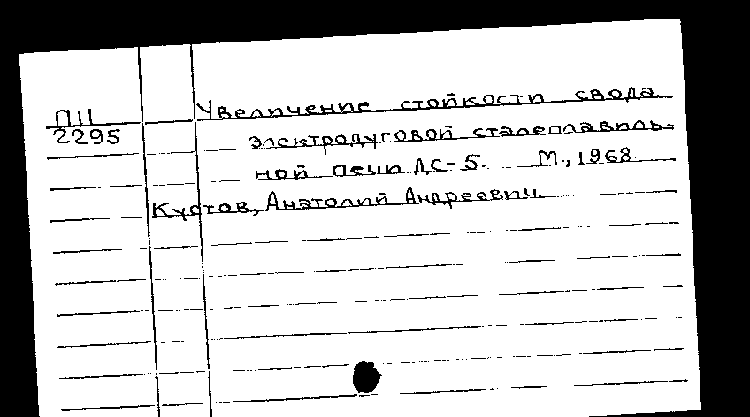 П11
2295
Увеличение стойкости свода
электродуговой сталеплавиль-
ной печи ДС-5. М., 1968.
Кустов, Анатолий Андреевич.